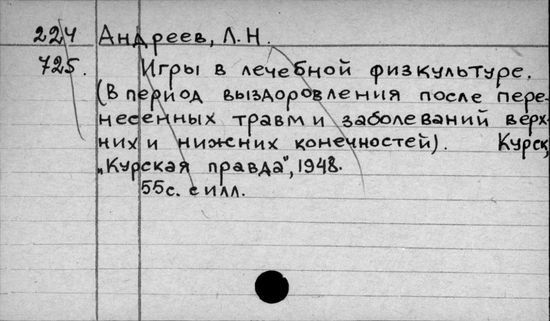 224 Андреев, Л.Н.
725. Игры в лечебной физкультуре.
(В период выздоровления после пере-
несенных травм и заболеваний верх-
них и нижних конечностей). Курск,
„Курская правда", 1948.
55с. с илл.